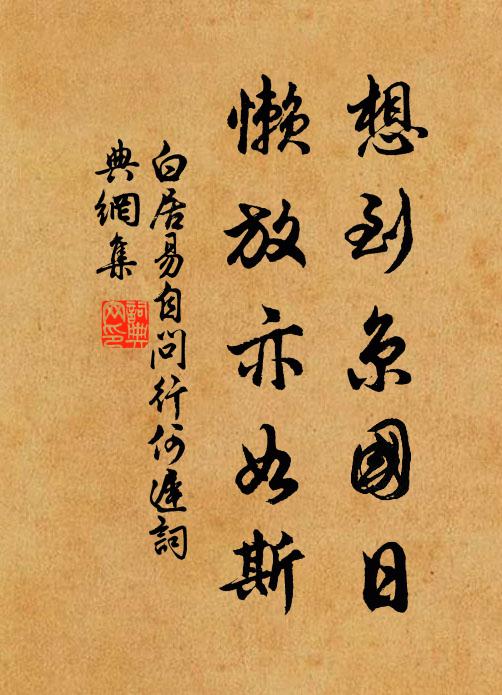 想到京國日
懶放亦如斯
白居易自問行何遲詞
典網集
詞典
网印